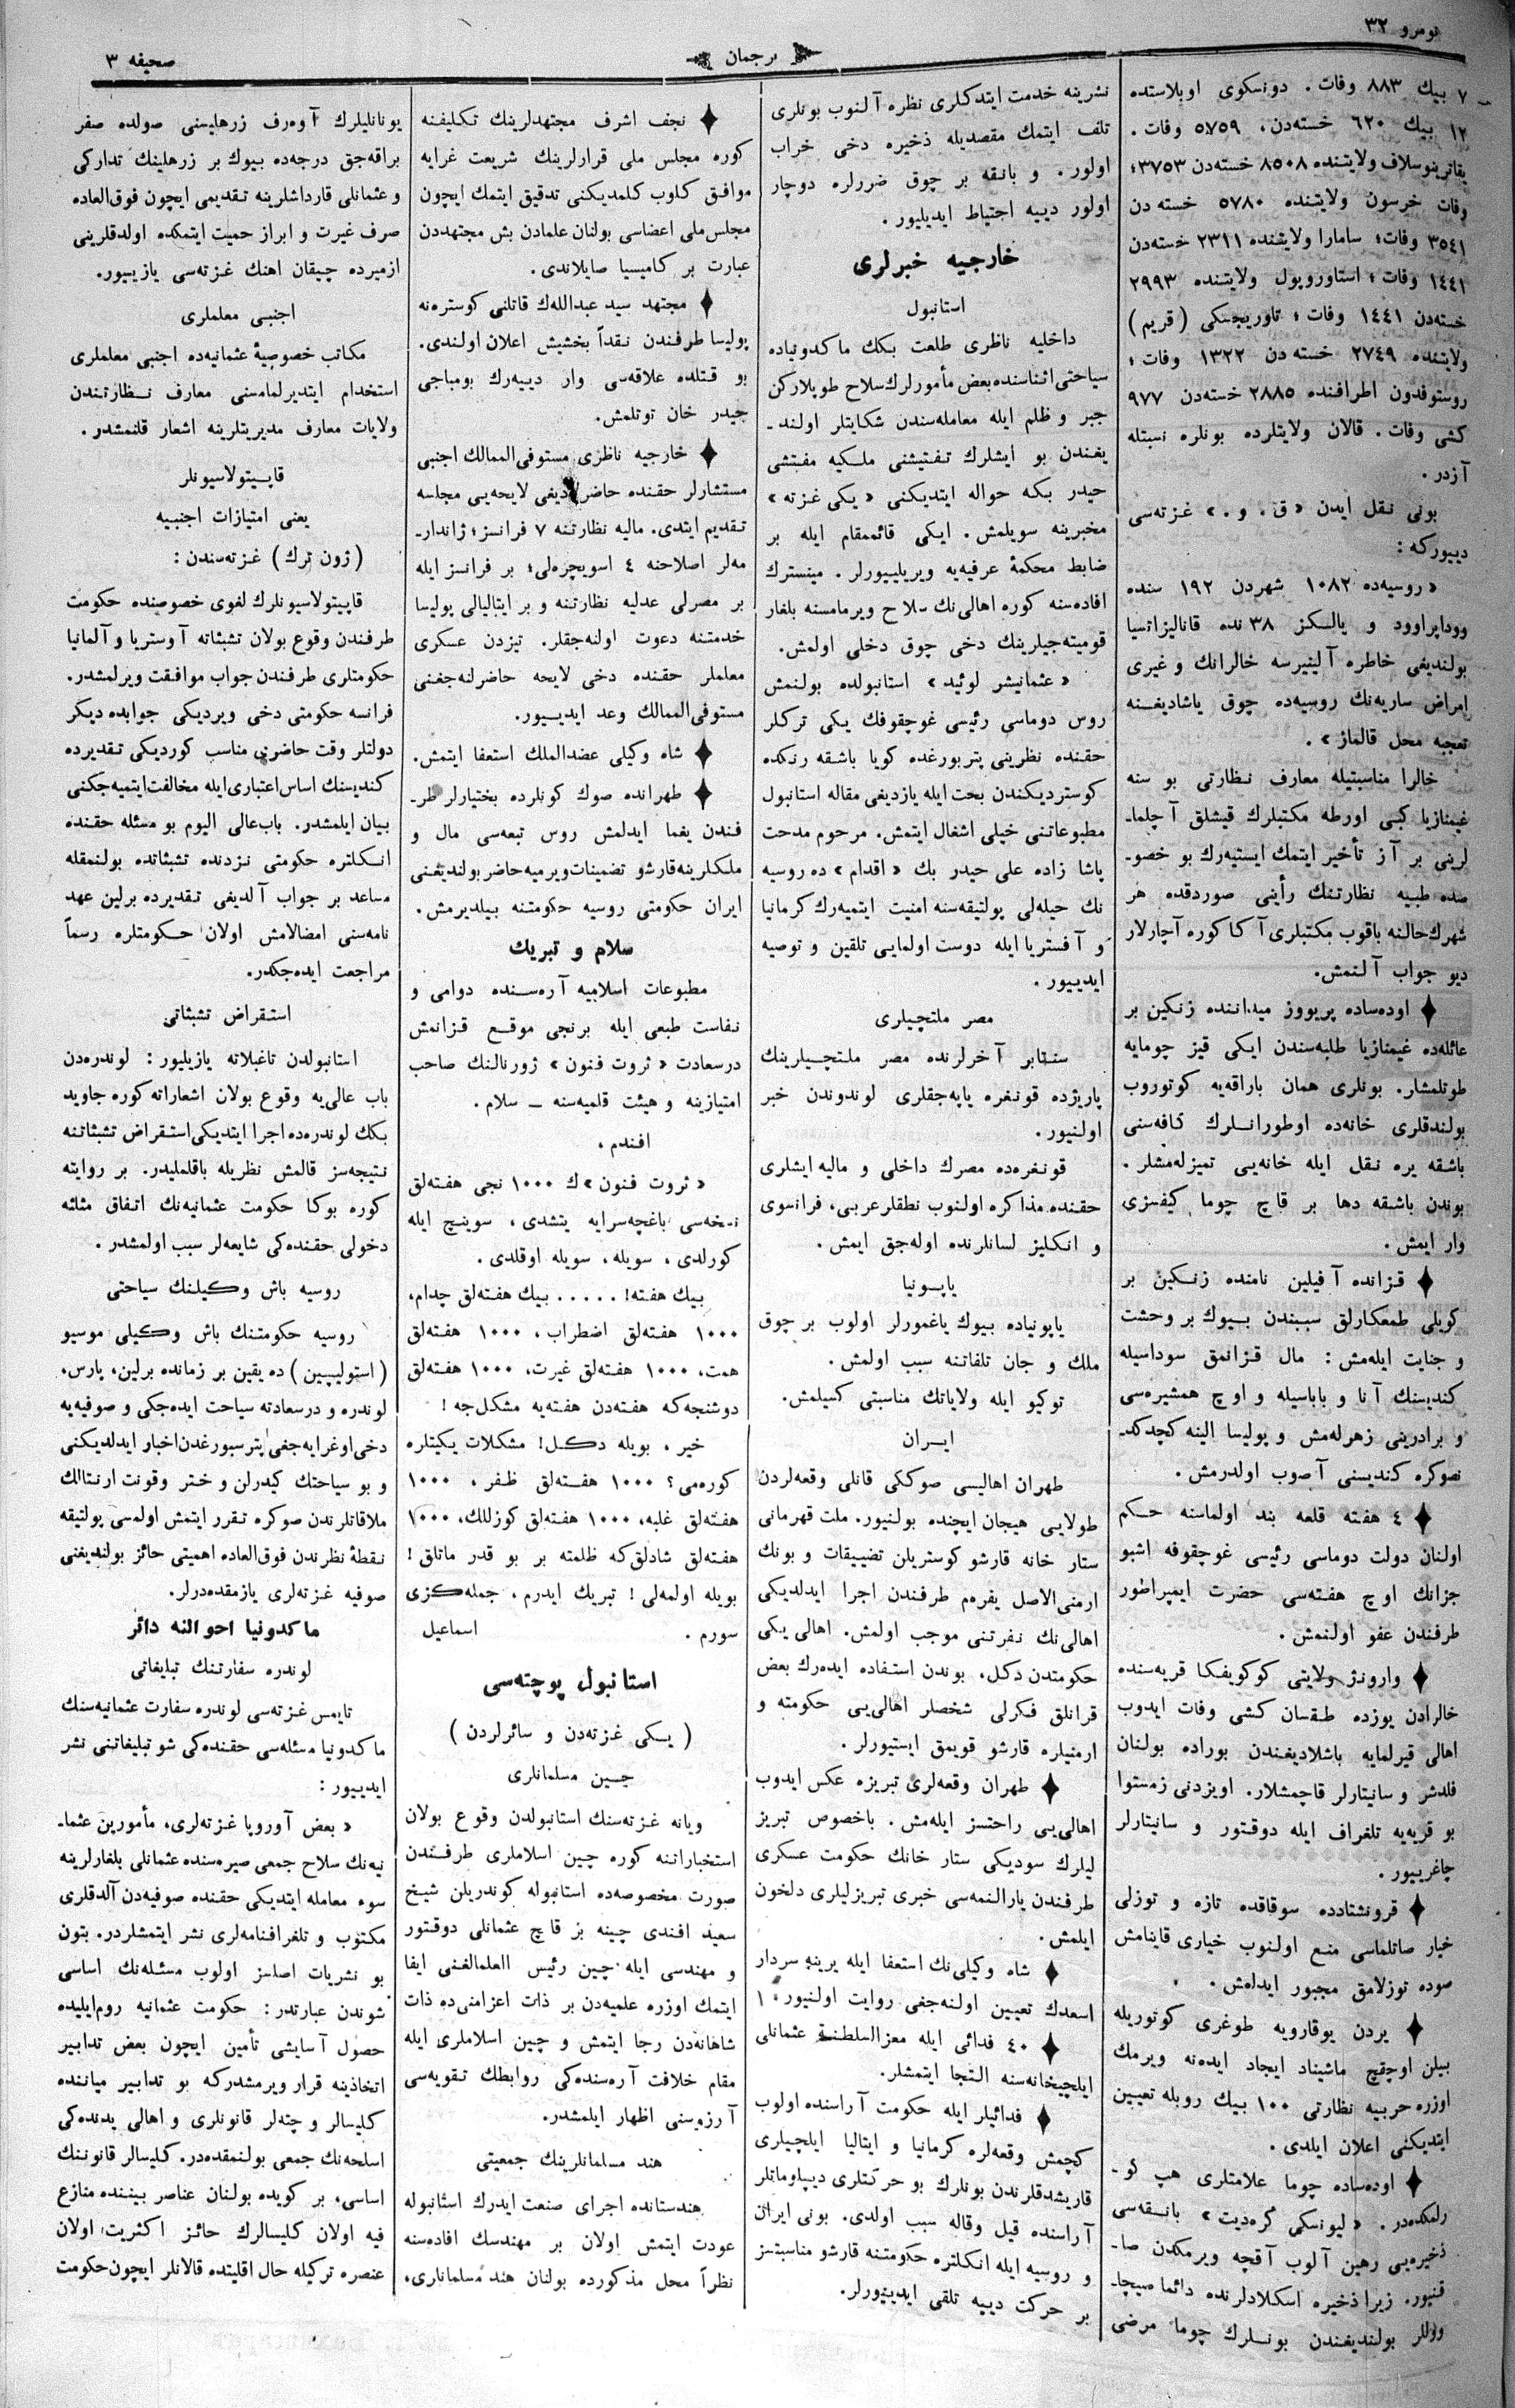 نومرو ٣٢
ترجمان
صحیفه ٣
٧ بیك ٨٨٣ وفات. دونسکوی اوبلاستده
١٢ بیك ٦٢٠ خسته‌دن، ٥٧٥٩ وفات.
یقاترینوسلاف ولایتنده ٨٥٠٨ خسته‌دن ٣٧٥٣؛
وفات خرسون ولایتنده ٥٧٨٠ خسته دن
٣٥٤١ وفات؛ سامارا ولایتنده ٢٣١١ خسته‌دن
١٤٤١ وفات؛ استاوروپول ولایتنده ٢٩٩٣
خسته‌دن ١٤٤١ وفات؛ تاوریچسکی (قریم)
ولایتنده ٢٧٤٩ خسته دن ١٣٢٢ وفات؛
روستوفدون اطرافنده ٢٨٨٥ خسته‌دن ٩٧٧
کشی وفات. قالان ولایتلرده بونلره نسبتله
آزدر.
بونی نقل ایدن «ق. و.» غزته‌سی
دییورکه:
«روسیه‌ده ١٠٨٢ شهردن ١٩٢ سنده
وودابراوود و یالکز ٣٨ نده قانالیزاتسیا
بولندیغی خاطره آلینیرسه خالرانك و غیری
امراض ساریه‌نك روسیه‌ده چوق یاشادیغنه
تعجبه محل قالماز».
خالرا مناسبتیله معارف نظارتی بو سنه
غیمنازیا کبی اورطه مکتبلرك قیشلق آچلما-
لرینی بر آز تأخیر ایتمك ایستیه‌رك بو خصو-
صده طبیه نظارتنك رأینی صوردقده هر
شهرك حالنه باقوب مکتبلری آکا کوره آچارلار
دیو جواب آلنمش.
♦ اوده‌ساده پریووز میداننده زنکین بر
عائله‌ده غیمنازیا طلبه‌سندن ایکی قیز چومایه
طوتلمشار. بونلری همان باراقه‌یه کوتوروب
بولندقلری خانه‌ده اوطورانلرك کافه‌سنی
باشقه یره نقل ایله خانه‌یی تمیزله‌مشلر.
بوندن باشقه دها بر قاچ چوما کیفسزی
وار ایمش.
♦ قزانده آفیلین نامنده زنکین بر
کویلی طمعکارلق سببندن بیوك بر وحشت
و جنایت ایله‌مش: مال قزانمق سوداسیله
کندیسنك آنا و باباسیله و اوچ همشیره‌سی
و برادرینی زهرله‌مش و پولیسا الینه کچدکد-
نصوکره کندیسنی آصوب اولدرمش.
♦ ٤ هفته قلعه بند اولماسنه حکم
اولنان دولت دوماسی رئیسی غوچقوفه اشبو
جزانك اوچ هفته‌سی حضرت ایمپراطور
طرفندن عفو اولنمش.
♦ وارونژ ولایتی کوکویفکا قریه‌سنده
خالرادن یوزده طقسان کشی وفات ایدوب
اهالی قیرلمایه باشلادیغندن بوراده بولنان
فلدشر و سانیتارلر قاچمشلار. اویزدنی زمستوا
بو قریه‌یه تلغراف ایله دوقتور و سانیتارلر
چاغرییور.
♦ قرونشتادده سوقاقده تازه و توزلی
خیار صاتلماسی منع اولنوب خیاری قاینامش
صوده توزلامق مجبور ایدلمش.
♦ یردن یوقارویه طوغری کوتوریله
بیلن اوچقچ ماشیناد ایجاد ایده‌نه ویرمك
اوزره حربیه نظارتی ١٠٠ بیك روبله تعیین
ایتدیکنی اعلان ایلدی.
♦ اوده‌ساده چوما علامتلری هپ کو-
رلمکده‌در. «لیونسکی کره‌دیت» بانقه‌سی
ذخیره‌یی رهین آلوب آقچه ویرمکدن صا-
قنیور. زیرا ذخیره اسکلادلرنده دائما صیچا-
وللر بولندیغندن بونلرك چوما مرضی
نشرینه خدمت ایتدکلری نظره آلنوب بونلری
تلف ایتمك مقصدیله ذخیره دخی خراب
اولور. و بانقه بر چوق ضررلره دوچار
اولور دییه اجتیاط ایدیلیور.
خارجیه خبرلری
استانبول
داخلیه ناظری طلعت بکك ماکدونیاده
سیاحتی اثناسنده بعض مأمورلرك سلاح طوپلارکن
جبر و ظلم ایله معامله‌سندن شکایتلر اولند-
یغندن بو ایشلرك تفتیشنی ملکیه مفتشی
حیدر بکه حواله ایتدیکنی «یکی غزته»
مخبرینه سویلمش. ایکی قائممقام ایله بر
ضابط محکمهٔ عرفیه‌یه ویریلییورلر. مینسترك
افاده‌سنه کوره اهالی‌نك سلاح ویرمامسنه بلغار
قومیته‌جیلرینك دخی چوق دخلی اولمش.
«عثمانیشر لوئید» استانبولده بولنمش
روس دوماسی رئیسی غوچقوفك یکی ترکلر
حقنده نظرینی پتربورغده کویا باشقه رنکده
کوستردیکندن بحث ایله یازدیغی مقاله استانبول
مطبوعاتنی خیلی اشغال ایتمش. مرحوم مدحت
پاشا زاده علی حیدر بك «اقدام» ده روسیه
نك حیله‌لی پولتیقه‌سنه امنیت ایتمیه‌رك کرمانیا
و آفستریا ایله دوست اولمایی تلقین و توصیه
ایدییور.
مصر ملتچیلری
سنتابر آخرلرنده مصر ملتچیلرینك
پاریژده قونغره یاپه‌جقلری لوندوندن خبر
اولنیور.
قونغره‌ده مصرك داخلی و مالیه ایشلری
حقنده مذاکره اولنوب نطقلر عربی، فرانسوی
و انکلیز لسانلرنده اوله‌جق ایمش.
یاپونیا
یاپونیاده بیوك یاغمورلر اولوب بر چوق
ملك و جان تلفاتنه سبب اولمش.
توکیو ایله ولایاتك مناسبتی کسیلمش.
ایران
طهران اهالیسی صوککی قانلی وقعه‌لردن
طولایی هیجان ایچنده بولنیور. ملت قهرمانی
ستار خانه قارشو کوستریلن تضییقات و بونك
ارمنی‌الاصل یفرم طرفندن اجرا ایدلدیکی
اهالی‌نك نفرتنی موجب اولمش. اهالی یکی
حکومتدن دکل، بوندن استفاده ایده‌رك بعض
قرانلق فکرلی شخصلر اهالی‌یی حکومته و
ارمنیلره قارشو قویمق ایستیورلر.
♦ طهران وقعه‌لری تبریزه عکس ایدوب
اهالی‌یی راحتسز ایله‌مش. باخصوص تبریز
لیلرك سودیکی ستار خانك حکومت عسکری
طرفندن یارالنمه‌سی خبری تبریزلیلری دلخون
ایلمش.
♦ شاه وکیلی‌نك استعفا ایله یرینه سردار
اسعدك تعیین اولنه‌جغی روایت اولنیور.
♦ ٤٠ فدائی ایله معزالسلطنه عثمانلی
ایلچیخانه‌سنه التجا ایتمشلر.
♦ فدائیلر ایله حکومت آراسنده اولوب
کچمش وقعه‌لره کرمانیا و ایتالیا ایلچیلری
قاریشدقلرندن بونلرك بو حرکتلری دیپلوماتلر
آراسنده قیل وقاله سبب اولدی. بونی ایران
و روسیه ایله انکلتره حکومتنه قارشو مناسبتسز
بر حرکت دییه تلقی ایدییورلر.
♦ نجف اشرف مجتهدلرینك تکلیفنه
کوره مجلس ملی قرارلرینك شریعت غرایه
موافق کلوب کلمدیکنی تدقیق ایتمك ایچون
مجلس‌ملی اعضاسی بولنان علمادن بش مجتهددن
عبارت بر کامیسیا صایلاندی.
♦ مجتهد سید عبدالله‌ك قاتلنی کوستره‌نه
پولیسا طرفندن نقداً بخشیش اعلان اولندی.
بو قتلده علاقه‌سی وار دییه‌رك بومباجی
حیدر خان توتلمش.
♦ خارجیه ناظری مستوفی‌الممالك اجنبی
مستشارلر حقنده حاضرلادیغی لایحه‌یی مجلسه
تقدیم ایتدی. مالیه نظارتنه ٧ فرانسز؛ ژاندار-
مه‌لر اصلاحنه ٤ اسویچره‌لی؛ بر فرانسز ایله
بر مصرلی عدلیه نظارتنه و بر ایتالیالی پولیسا
خدمتنه دعوت اولنه‌جقلر. تیزدن عسکری
معلملر حقنده دخی لایحه حاضرلنه‌جغنی
مستوفی‌الممالك وعد ایدییور.
♦ شاه وکیلی عضدالملك استعفا ایتمش.
♦ طهرانده صوك کونلرده بختیارلر طر-
فندن یغما ایدلمش روس تبعه‌سی مال و
ملکلرینه قارشو تضمینات ویرمیه حاضر بولندیغنی
ایران حکومتی روسیه حکومتنه بیلدیرمش.
سلام و تبریك
مطبوعات اسلامیه آره‌سنده دوامی و
نفاست طبعی ایله برنجی موقع قزانمش
درسعادت «ثروت فنون» ژورنالنك صاحب
امتیازینه و هیئت قلمیه‌سنه ــ سلام.
افندم،
«ثروت فنون»ك ١٠٠٠ نجی هفته‌لق
نسخه‌سی باغچه‌سرایه یتشدی، سوینچ ایله
کورلدی، سویله، سویله اوقلدی.
بیك هفته! ..... بیك هفته‌لق چدام،
١٠٠٠ هفته‌لق اضطراب، ١٠٠٠ هفته‌لق
همت، ١٠٠٠ هفته‌لق غیرت، ١٠٠٠ هفته‌لق
دوشنجه که هفته‌دن هفته‌یه مشکل‌جه!
خیر، بویله دکل! مشکلات یکیتلره
کوره‌می؟ ١٠٠٠ هفته‌لق ظفر، ١٠٠٠
هفته‌لق غلبه، ١٠٠٠ هفته‌لق کوزللك، ١٠٠٠
هفته‌لق شادلق که ظلمته بر بو قدر ماتلق!
بویله اولمه‌لی! تبریك ایدرم، جمله‌کزی
سورم. اسماعیل
استانبول پوچته‌سی
(یکی غزته‌دن و سائرلردن)
چین مسلمانلری
ویانه غزته‌سنك استانبولدن وقوع بولان
استخباراتنه کوره چین اسلاملری طرفندن
صورت مخصوصه‌ده استانبوله کوندریلن شیخ
سعید افندی چینه بر قاچ عثمانلی دوقتور
و مهندسی ایله چین رئیس العلمالغنی ایفا
ایتمك اوزره علمیه‌دن بر ذات اعزامنی ده ذات
شاهانه‌دن رجا ایتمش و چین اسلاملری ایله
مقام خلافت آره‌سنده‌کی روابطك تقویه‌سی
آرزوسنی اظهار ایلمشدر.
هند مسلمانلرینك جمعیتی
هندستانده اجرای صنعت ایدرك استانبوله
عودت ایتمش اولان بر مهندسك افاده‌سنه
نظراً محل مذکورده بولنان هند مسلمانلری،
یونانلیلرك آوه‌رف زرهلیسنی صولده صفر
براقه‌جق درجه‌ده بیوك بر زرهلینك تدارکی
و عثمانلی قارداشلرینه تقدیمی ایچون فوق‌العاده
صرف غیرت و ابراز حمیت ایتمکده اولدقلرینی
ازمیرده چیقان اهنك غزته‌سی یازییور.
اجنبی معلملری
مکاتب خصوصیهٔ عثمانیه‌ده اجنبی معلملری
استخدام ایتدیرلمامسنی معارف نظارتندن
ولایات معارف مدیریتلرینه اشعار قلنمشدر.
قاپیتولاسیونلر
یعنی امتیازات اجنبیه
(ژون ترك) غزته‌سندن:
قاپیتولاسیونلرك لغوی خصوصنده حکومت
طرفندن وقوع بولان تشبثاته آوستریا و آلمانیا
حکومتلری طرفندن جواب موافقت ویرلمشدر.
فرانسه حکومتی دخی ویردیکی جوابده دیکر
دولتلر وقت حاضری مناسب کوردیکی تقدیرده
کندیسنك اساس اعتباری ایله مخالفت ایتمیه‌جکنی
بیان ایلمشدر. باب‌عالی الیوم بو مسئله حقنده
انکلتره حکومتی نزدنده تشبثاتده بولنمقله
مساعد بر جواب آلدیغی تقدیرده برلین عهد
نامه‌سنی امضالامش اولان حکومتلره رسماً
مراجعت ایده‌جکدر.
استقراض تشبثاتی
استانبولدن تاغبلاته یازیلیور: لوندره‌دن
باب عالی‌یه وقوع بولان اشعاراته کوره جاوید
بکك لوندره‌ده اجرا ایتدیکی استقراض تشبثاتنه
نتیجه‌سز قالمش نظریله باقلملیدر. بر روایته
کوره بوکا حکومت عثمانیه‌نك اتفاق مثلثه
دخولی حقنده‌کی شایعه‌لر سبب اولمشدر.
روسیه باش وکیلنك سیاحتی
روسیه حکومتنك باش وکیلی موسیو
(استولیپین) ده یقین بر زمانده برلین، پارس،
لوندره و درسعادته سیاحت ایده‌جکی و صوفیه‌یه
دخی اوغرایه‌جغی پترسبورغدن اخبار ایدلدیکنی
و بو سیاحتك کیدرلن و ختر وقونت ارنتالك
ملاقاتلرندن صوکره تقرر ایتمش اولمه‌سی پولتیقه
نقطهٔ نظرندن فوق‌العاده اهمیتی حائز بولندیغنی
صوفیه غزته‌لری یازمقده‌درلر.
ماکدونیا احوالنه دائر
لوندره سفارتنك تبلیغاتی
تایمس غزته‌سی لوندره سفارت عثمانیه‌سنك
ماکدونیا مسئله‌سی حقنده‌کی شو تبلیغاتنی نشر
ایدییور:
«بعض آوروپا غزته‌لری، مأمورین عثما-
نیه‌نك سلاح جمعی صیره‌سنده عثمانلی بلغارلرینه
سوء معامله ایتدیکی حقنده صوفیه‌دن آلدقلری
مکتوب و تلغرافنامه‌لری نشر ایتمشلردر. بتون
بو نشریات اصلسز اولوب مسئله‌نك اساسی
شوندن عبارتدر: حکومت عثمانیه روم‌ایلیده
حصول آسایشی تأمین ایچون بعض تدابیر
اتخاذینه قرار ویرمشدرکه بو تدابیر میاننده
کلیسالر و چته‌لر قانونلری و اهالی یدنده‌کی
اسلحه‌نك جمعی بولنمقده‌در. کلیسالر قانوننك
اساسی، بر کویده بولنان عناصر بیننده منازع
فیه اولان کلیسالرك حائز اکثریت اولان
عنصره ترکیله حال اقلیتده قالانلر ایچون حکومت